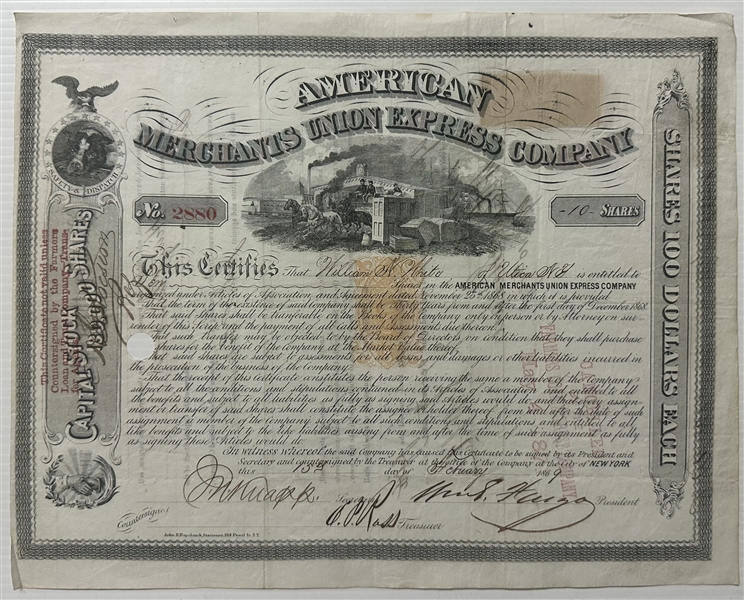 AMERICAN
MERCHANTS UNION EXPRESS COMPANY
SAFETY & DISPATCH
No. 2880
-10- SHARES
This Certifies That William H. White of Utica N.Y. is entitled to
Ten Shares in the AMERICAN MERCHANTS UNION EXPRESS COMPANY
organized under Articles of Association and Agreement dated November 25th 1868, in which it is provided
That the term of this Company shall be Years from and after the first day of December 1868.
That said shares shall be transferable on the Books of the Company only in person or by Attorney on sur-
render of this Scrip and the payment of all Calls and Assessment due thereon.
That such transfer may be objected to by the Board of Directors on condition that they shall purchase
the shares for the benefit of the Company at the Market Value thereof.
That said shares are subject to assessments for all losses and damages or other liabilities incurred in
the prosecution of the business of the Company.
That the receipt of this Certificate constitutes the person receiving the same a member of the Company
subject to all the conditions and stipulations contained in its Articles of Association and entitled to all
the benefits and subject to all liabilities as fully as signing said Articles would do and that every assign-
ment or transfer of said Shares shall constitute the assignee or holder thereof from and after the date of such
assignment a member of the company subject to all such conditions and stipulations and entitled to all
like benefits and subject to the like liabilities arising from and after the time of such assignment as fully
as signing these Articles would do.
In witness whereof the said Company has caused this Certificate to be signed by its President and
Secretary and countersigned by the Treasurer at the office of the Company at the City of NEW YORK
this 18 day of February 1869
Secretary
Wm. G. Fargo President
Countersigned
J. P. Ross Treasurer
This Certificate not valid unless
Countersigned by the Farmers
Loan and Trust Company, Trans-
CAPITAL STOCK 180,000 SHARES
SHARES 100 DOLLARS EACH